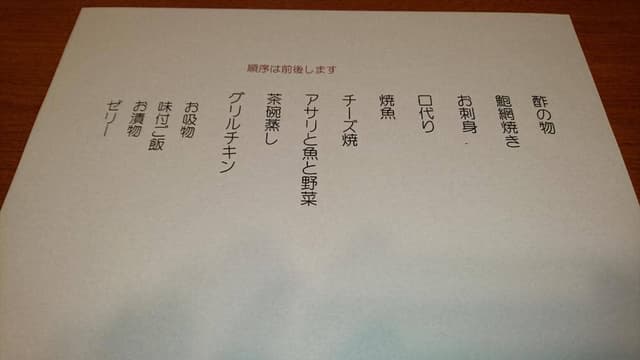 順序は前後します
酢の物
鮑網焼き
お刺身
口代り
焼魚
チーズ焼
アサリと魚と野菜
茶碗蒸し
グリルチキン
お吸物
味付ご飯
お漬物
ゼリー